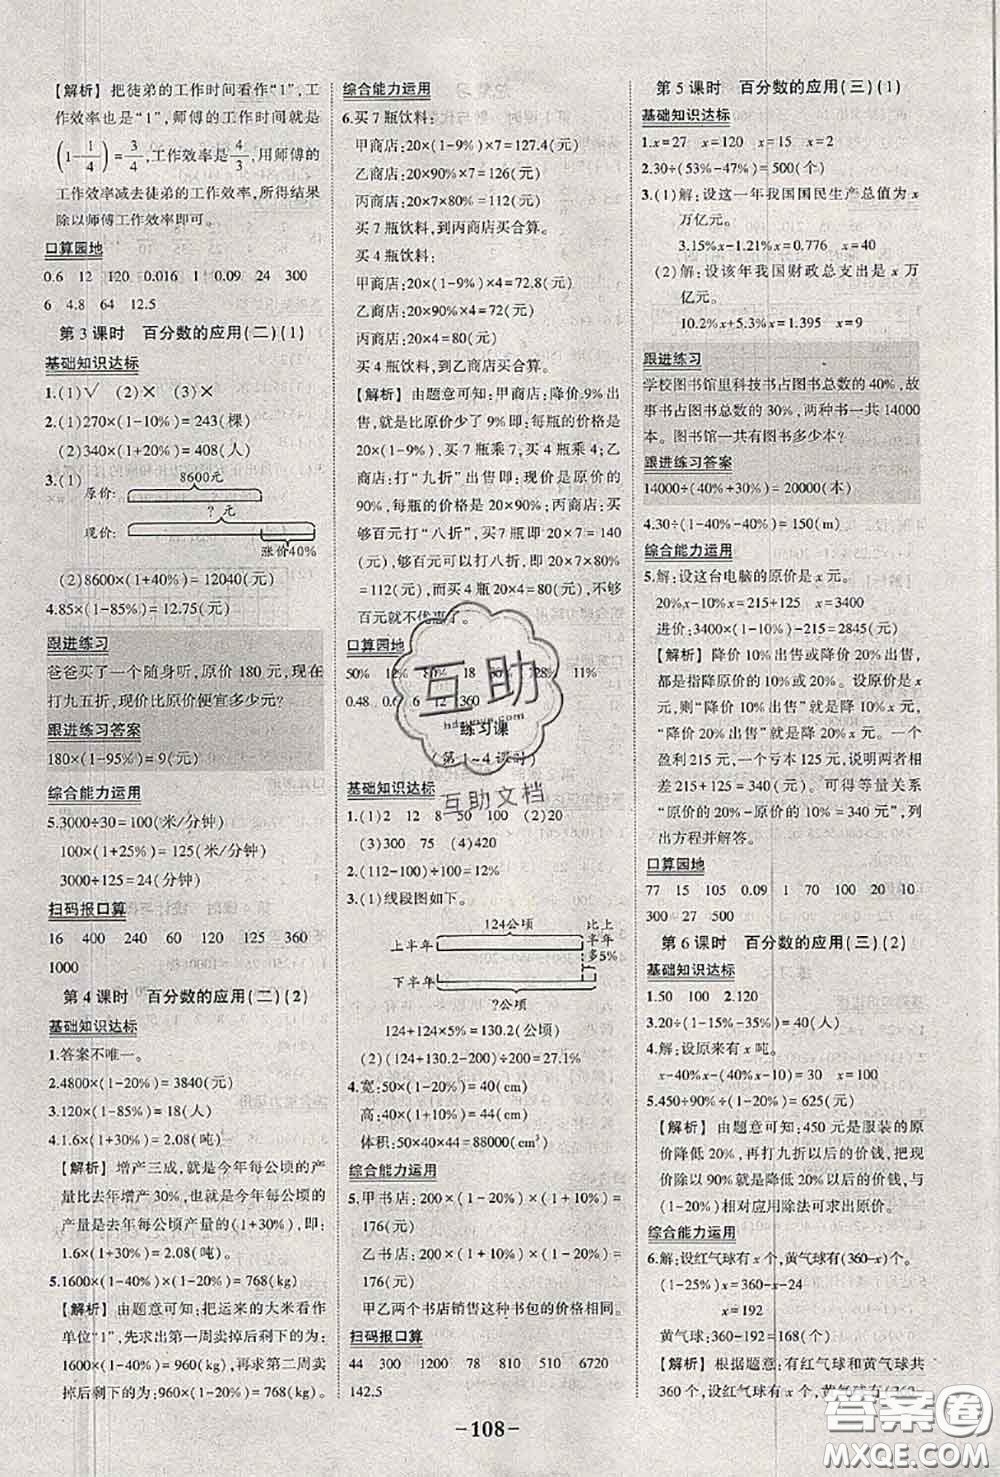 【解析】把徒弟的工作时间看作“1”,工
作效率也是“1”,师傅的工作时间就是
(1-1/4)=3/4,工作效率是4/3,用师傅的
工作效率减去徒弟的工作效率,所得结果
除以师傅工作效率即可。
口算园地
0.6 12 120 0.016 1 0.09 24 300
6 4.8 64 12.5
第3课时 百分数的应用(二)(1)
基础知识达标
1.(1)√ (2)× (3)×
2.(1)270×(1-10%)=243(棵)
(2)340×(1+20%)=408(人)
3.(1)
8600元
原价:
?元
现价:
涨价40%
(2)8600×(1+40%)=12040(元)
4.85×(1-85%)=12.75(元)
跟进练习
爸爸买了一个随身听,原价180元,现在
打九五折,现价比原价便宜多少元?
跟进练习答案
180×(1-95%)=9(元)
综合能力运用
5.3000÷30=100(米/分钟)
100×(1+25%)=125(米/分钟)
3000÷125=24(分钟)
扫码报口算
16 400 240 60 120 125 360
1000
第4课时 百分数的应用(二)(2)
基础知识达标
1.答案不唯一。
2.4800×(1-20%)=3840(元)
3.120×(1-85%)=18(元)
4.1.6×(1+30%)=2.08(吨)
【解析】增产三成,就是今年每公顷的产
量比去年每公顷增产30%,今年每公顷的
产量是去年每公顷产量的(1+30%),即:
1.6×(1+30%)=2.08(吨)。
5.1600×(1-40%)×(1-20%)=768(kg)
【解析】由题意可知:把运来的大米看作
单位“1”,先求出第一周卖掉后剩下的为:
1600×(1-40%)=960(kg),再求第二周
卖掉后剩下的为:960×(1-20%)=768(kg)。
综合能力运用
6.买7瓶饮料:
甲商店:20×(1-9%)×7=127.4(元)
乙商店:20×90%×7=126(元)
丙商店:20×7×80%=112(元)
买7瓶饮料,到丙商店买合算。
买4瓶饮料:
甲商店:20×(1-9%)×4=72.8(元)
乙商店:20×90%×4=72(元)
丙商店:20×4=80(元)
买4瓶饮料,到乙商店买合算。
【解析】由题意可知:甲商店:降价9%出
售,就是比原价少了9%即:每瓶的价格是
20×(1-9%),买7瓶乘7,买4瓶乘4;乙
商店:打“九折”出售即:现价是原价的
90%,每瓶的价格是20×90%;丙商店:买
够百元打“八折”,买7瓶20×7=140
(元),够百元可以打八折,即20×7×80%
=112(元),而买4瓶20×4=80(元),不够
百元就不优惠了。
口算园地
50% 12% 80% 18 30% 128% 11%
0.48 0.6 6 12 360
练习课
(第1~4课时)
基础知识达标
1.(1)2 12 8 50 100 (2)20
(3)300 75 (4)125 25
2.(112-100)÷100=12%
3.(1)线段图如下。
124公顷
比上
半年
多5%
上半年
下半年
?公顷
124+124×5%=130.2(公顷)
(2)(124+130.2-200)÷200=27.1%
4.宽:50×(1-20%)=40(cm)
高:40×(1+10%)=44(cm)
体积:50×40×44=88000(cm³)
综合能力运用
5.甲书店:200×(1-20%)×(1+10%)=
176(元)
乙书店:200×(1+10%)×(1-20%)=
176(元)
甲乙两个书店销售这种书包的价格相同。
扫码报口算
44 300 1200 78 810 510 6720
142.5
第5课时 百分数的应用(三)(1)
基础知识达标
1.x=27 x=120 x=15 x=20
2.30÷(53%-47%)=500(个)
3.(1)解:设这一年我国国民生产总值为x
万亿元。
3.15%x-1.21%x=0.776 x=40
(2)解:设该年我国财政总支出是x万
亿元。
10.2%x+5.3%x=1.395 x=9
跟进练习
学校图书馆里科技书占图书总数的40%,故
事书占图书总数的30%,两种书一共14000
本。图书馆一共有图书多少本?
跟进练习答案
14000÷(40%+30%)=20000(本)
4.30÷(1-40%-40%)=150(m)
综合能力运用
5.解:设这台电脑的原价是x元。
20%x-10%x=345-5 x=3400
进价:3400×(1-10%)-215=2845(元)
【解析】降价10%出售或降价20%出
售,都是指降原价的10%或20%,设原价是
x元,则“降价10%出售”就是降10%x元,
“降价20%出售”就是降20%x元,而一个
盈利215元,一个亏本125元,说明两者相
差215+125=340(元)。可得等量关系
“原价的20%-原价的10%=340元”,列
出方程并解答。
口算园地
77 15 105 0.09 1 70 100 20 10
300 27 500
第6课时 百分数的应用(三)(2)
基础知识达标
1.50 100 2.120
3.20÷(1-15%-35%)=40(人)
4.解:设原来有x吨。
x-40%x-(40%x-30)=50 x=100
5.450÷90%÷(1-20%)=625(元)
【解析】由题意可知:450元是服装的原
价降低20%,再打九折以后的价钱,把现
价除以90%就是降低20%后的价钱,与
(1-20%)相对应用除法可求出原价。
综合能力运用
6.解:设红气球有x个,黄气球有(360-x)个。
(1-25%)x=360-x-24
x=192
黄气球:360-192=168(个)
【解析】根据题意:有红气球和黄气球共
360个,设红气球有x个,黄气球有(360-
-108-
互助
hdzuoye.com
互助文档
答案圈
MXQE.COM